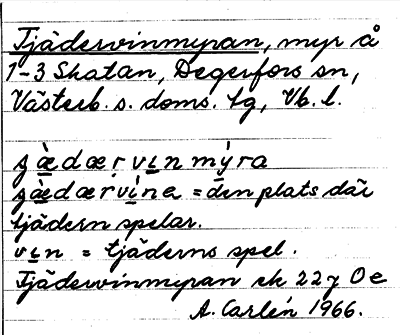 Tjädervinmyran, myr å
1-3 Skatan, Degerfors sn,
Västerb. s. doms. tg, Vb. l.
ʒæ̀dærvɩnmýra
ʒæ̀dærvína = den plats där
tjädern spelar.
vɩn = tjäderns spel.
Tjädervinmyran ek 22 y 0 e
A. Carlén 1966.